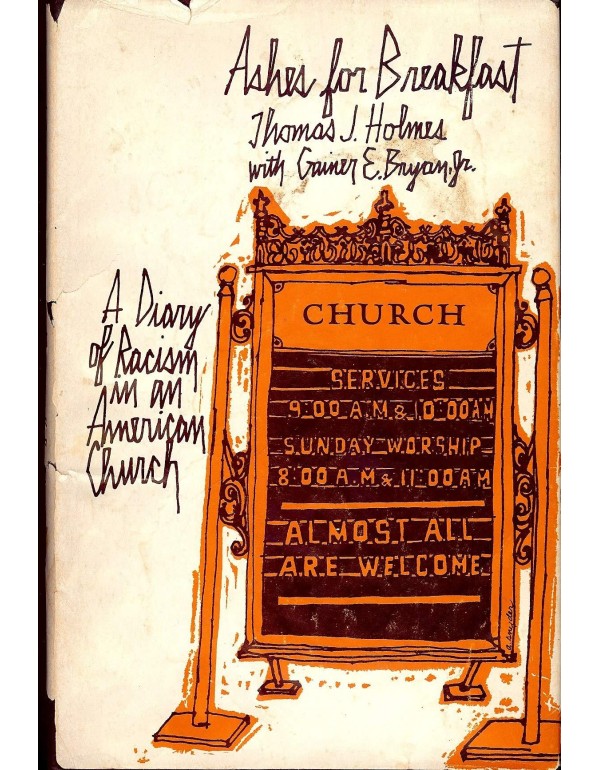 Ashes for Breakfast
Thomas J. Holmes
with Gainer E. Bryan, Jr.
A Diary
of Racism
in an
American
Church
CHURCH
SERVICES
9:00 A.M & 10:00 AM
SUNDAY WORSHIP
8:00 A.M & 11:00 A.M
ALMOST ALL
ARE WELCOME
a. snyder